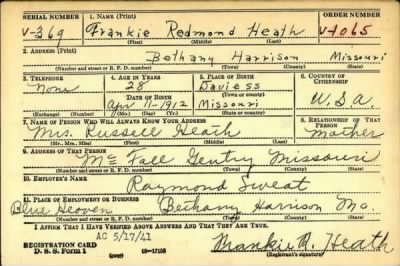 SERIAL NUMBER 1. NAME (Print) ORDER NUMBER
V-369 Frankie Redmond Heath V-1065
(First) (Middle) (Last)
2. ADDRESS (Print)
Bethany Harrison Missouri
(Number and street or R. F. D. number) (Town) (County) (State)
3. TELEPHONE 4. AGE IN YEARS 5. PLACE OF BIRTH 6. COUNTRY OF CITIZENSHIP
None 28 Daviess
DATE OF BIRTH (Town or county)
Apr 11-1912 Missouri U.S.A.
(Exchange) (Number) (Mo.) (Day) (Yr.) (State or country)
7. NAME OF PERSON WHO WILL ALWAYS KNOW YOUR ADDRESS 8. RELATIONSHIP OF THAT PERSON
Mrs. Russell Heath Mother
(Mr., Mrs., Miss) (First) (Middle) (Last)
9. ADDRESS OF THAT PERSON
Mc Fall Gentry Missouri
(Number and street or R. F. D. number) (Town) (County) (State)
10. EMPLOYER'S NAME
Raymond Sweat
11. PLACE OF EMPLOYMENT OR BUSINESS
Blue Bethany Harrison Mo.
(Number and street or R. F. D. number) (Town) (County) (State)
I AFFIRM THAT I HAVE VERIFIED ABOVE ANSWERS AND THAT THEY ARE TRUE.
REGISTRATION CARD AC 5/17/41
D. S. S. Form 1 Frankie R. Heath
(Registrant's signature)